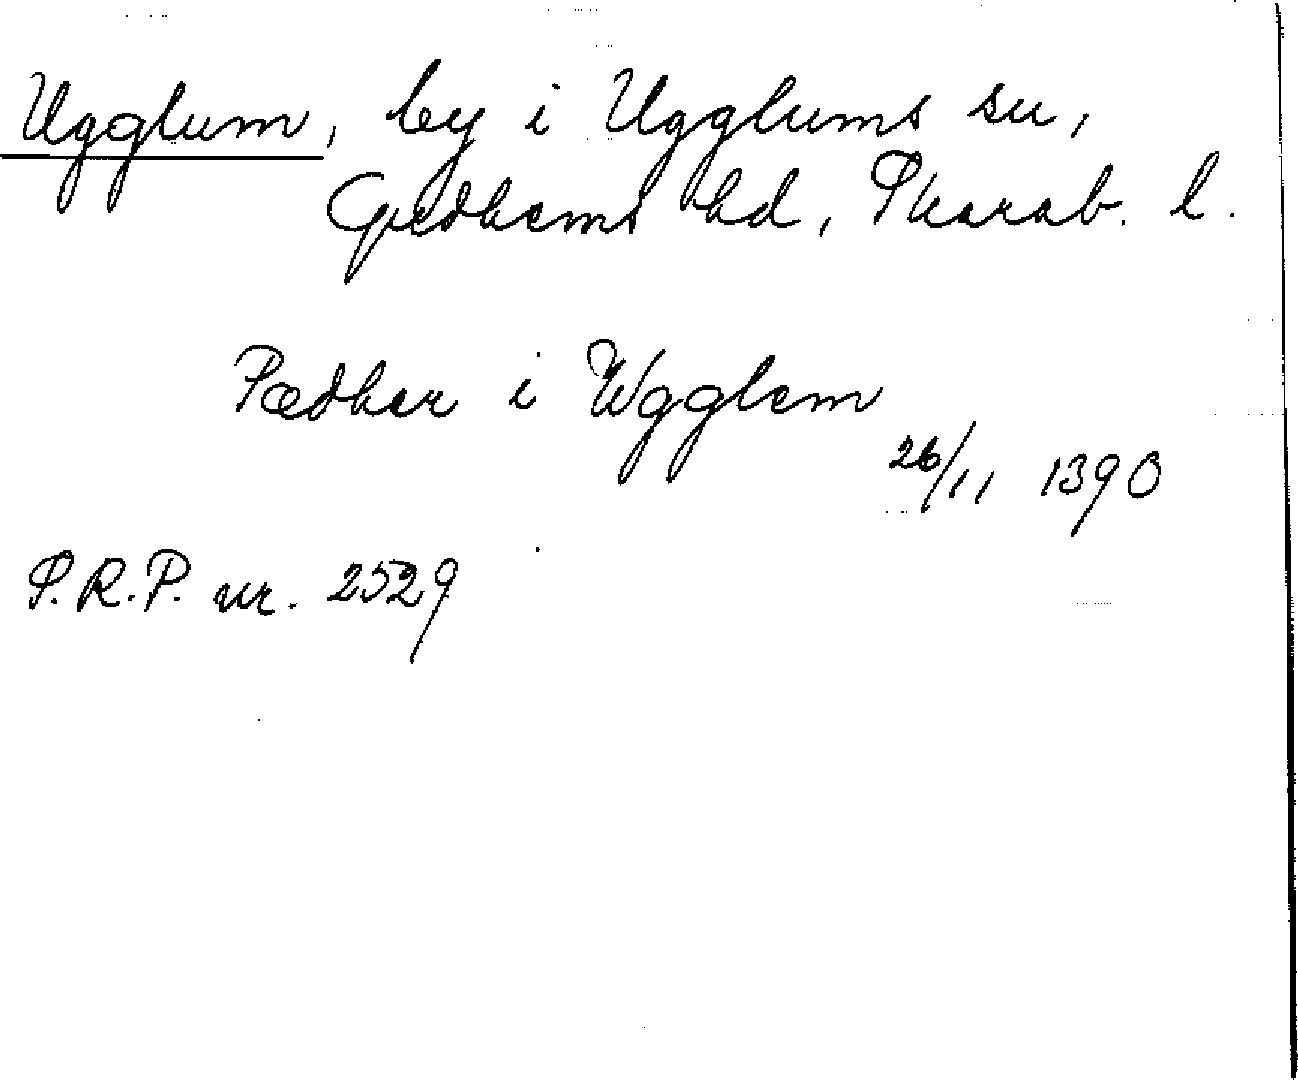 Ugglum, by i Ugglums sn,
Gudhems hd, Skarab. l.
Pædher i Wgglem
26/11 1390
S.R.P. nr. 2529